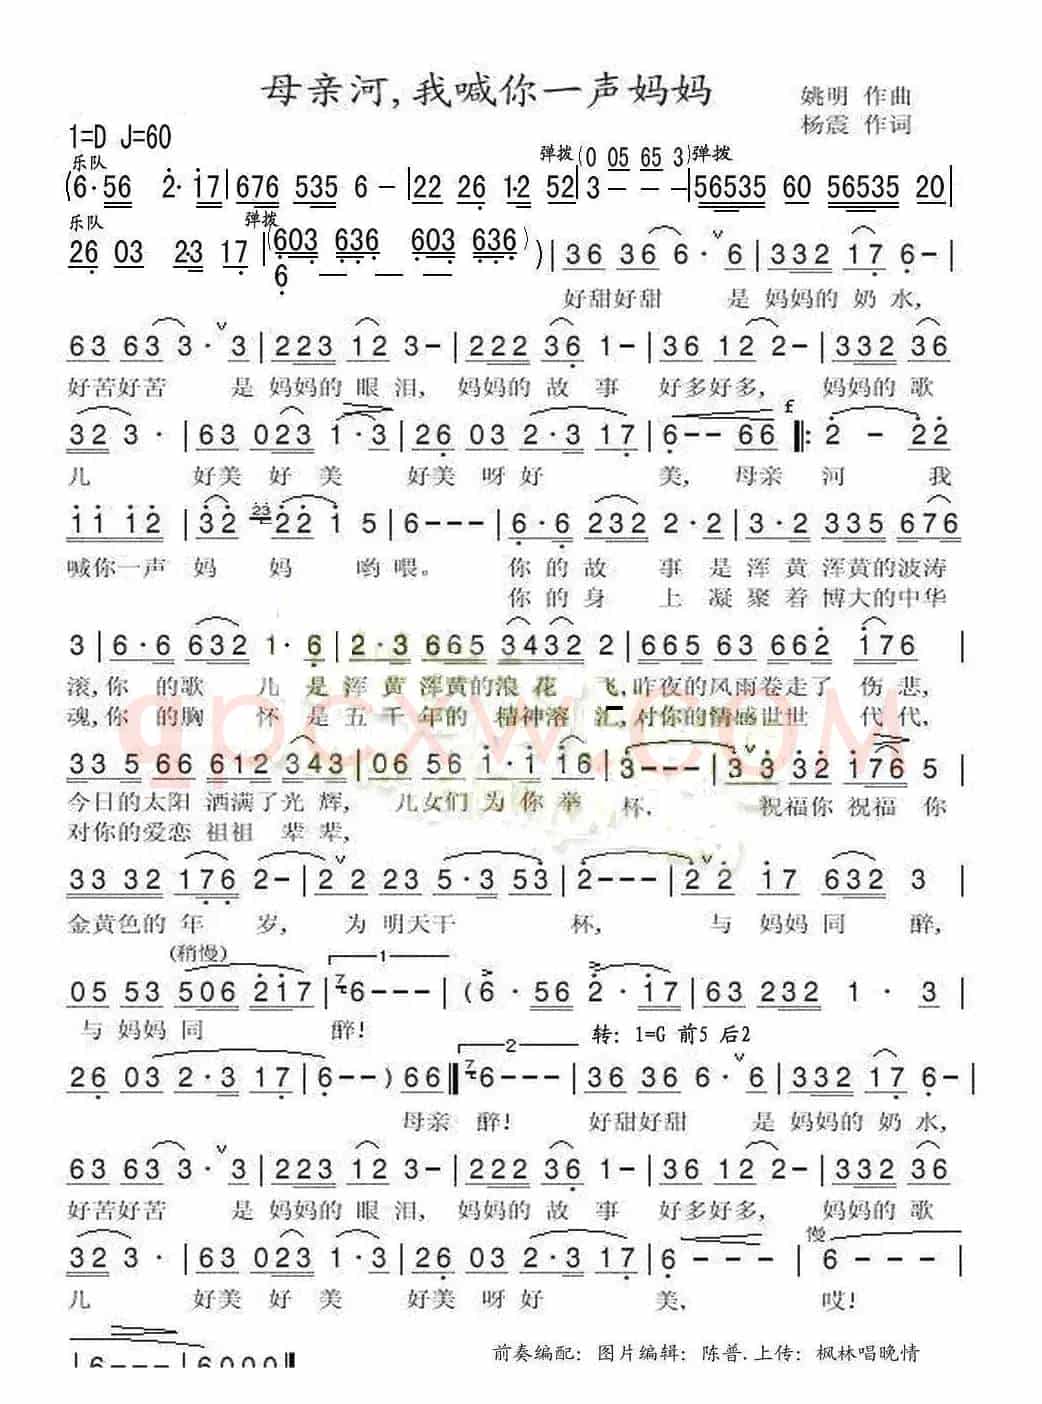 母亲河,我喊你一声妈妈
姚明 作曲
杨震 作词
1=D J=60
乐队 弹拨 (0 05 65 3) 弹拨
(6·56 2·17|676 535 6 -|22 26 1·2 52|3 - - -|56535 60 56535 20|
乐队 弹拨
26 03 2·3 17|(603 636 603 636)
6 - - - )|36 36 6·ˇ6|332 17 6-|
好甜好甜 是妈妈的奶水,
63 63 3·ˇ3|223 12 3-|222 36 1-|36 12 2-|332 36
好苦好苦 是妈妈的眼泪, 妈妈的故事 好多好多, 妈妈的歌
f
32 3·|63 023 1·3|26 03 2·3 17|6-- 66‖:2 - 22
儿 好美好美 好美呀好 美, 母亲河 我
11 12|32 23 22 1 5|6---|6·6 232 2·2|3·2 335 676
喊你一声妈 妈 哟喂。 你的故 事是浑黄浑黄的波涛
你的身 上凝聚着博大的中华
3|6·6 632 1·6|2·3 665 3432 2|665 63 662 176|
滚,你的歌 儿是浑黄浑黄的浪花 飞,昨夜的风雨卷走了伤悲,
魂,你的胸 怀是五千年的 精神溶汇,对你的情感世世 代代,
qpcxw.COM
33 566 612 343|06 56 1·1 16|3---|ˇ33 32 176 5|
今日的太阳 洒满了光辉, 儿女们为你举 杯. 祝福你祝福你
对你的爱恋 祖祖 辈辈,
33 32 176 2-|2ˇ2 23 5·3 53|2---|2ˇ2 17 632 3|
金黄色的年 岁, 为 明天干 杯, 与 妈妈同 醉,
(稍慢) 1
05 53 506 217|7 6---|(6·56 2·17|63 232 1·3|
与妈妈同 醉! 转: 1=G 前5 后2
2
26 03 2·3 17|6--)66‖7 6---|36 36 6·ˇ6|332 17 6-|
母亲 醉! 好甜好甜 是妈妈的奶水,
63 63 3·ˇ3|223 12 3-|222 36 1-|36 12 2-|332 36
好苦好苦 是妈妈的眼泪, 妈妈的故事 好多好多, 妈妈的歌
慢
32 3·|63 023 1·3|26 03 2·3 17|6---|6---|
儿 好美好美 好美呀好 美, 哎!
|6---|6000‖
前奏编配: 图片编辑: 陈普.上传: 枫林唱晚情